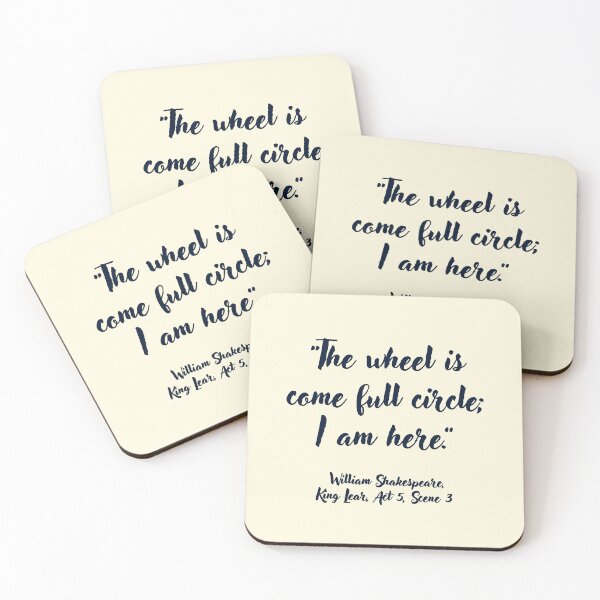 "The wheel is
come full circle
3
"The wheel is
come full circle;
I am here."
"The wheel is
come full circle;
I am here"
William
King Lear, Act 5,
"The wheel is
come full circle;
I am here."
William Shakespeare,
King Lear, Act 5, Scene 3